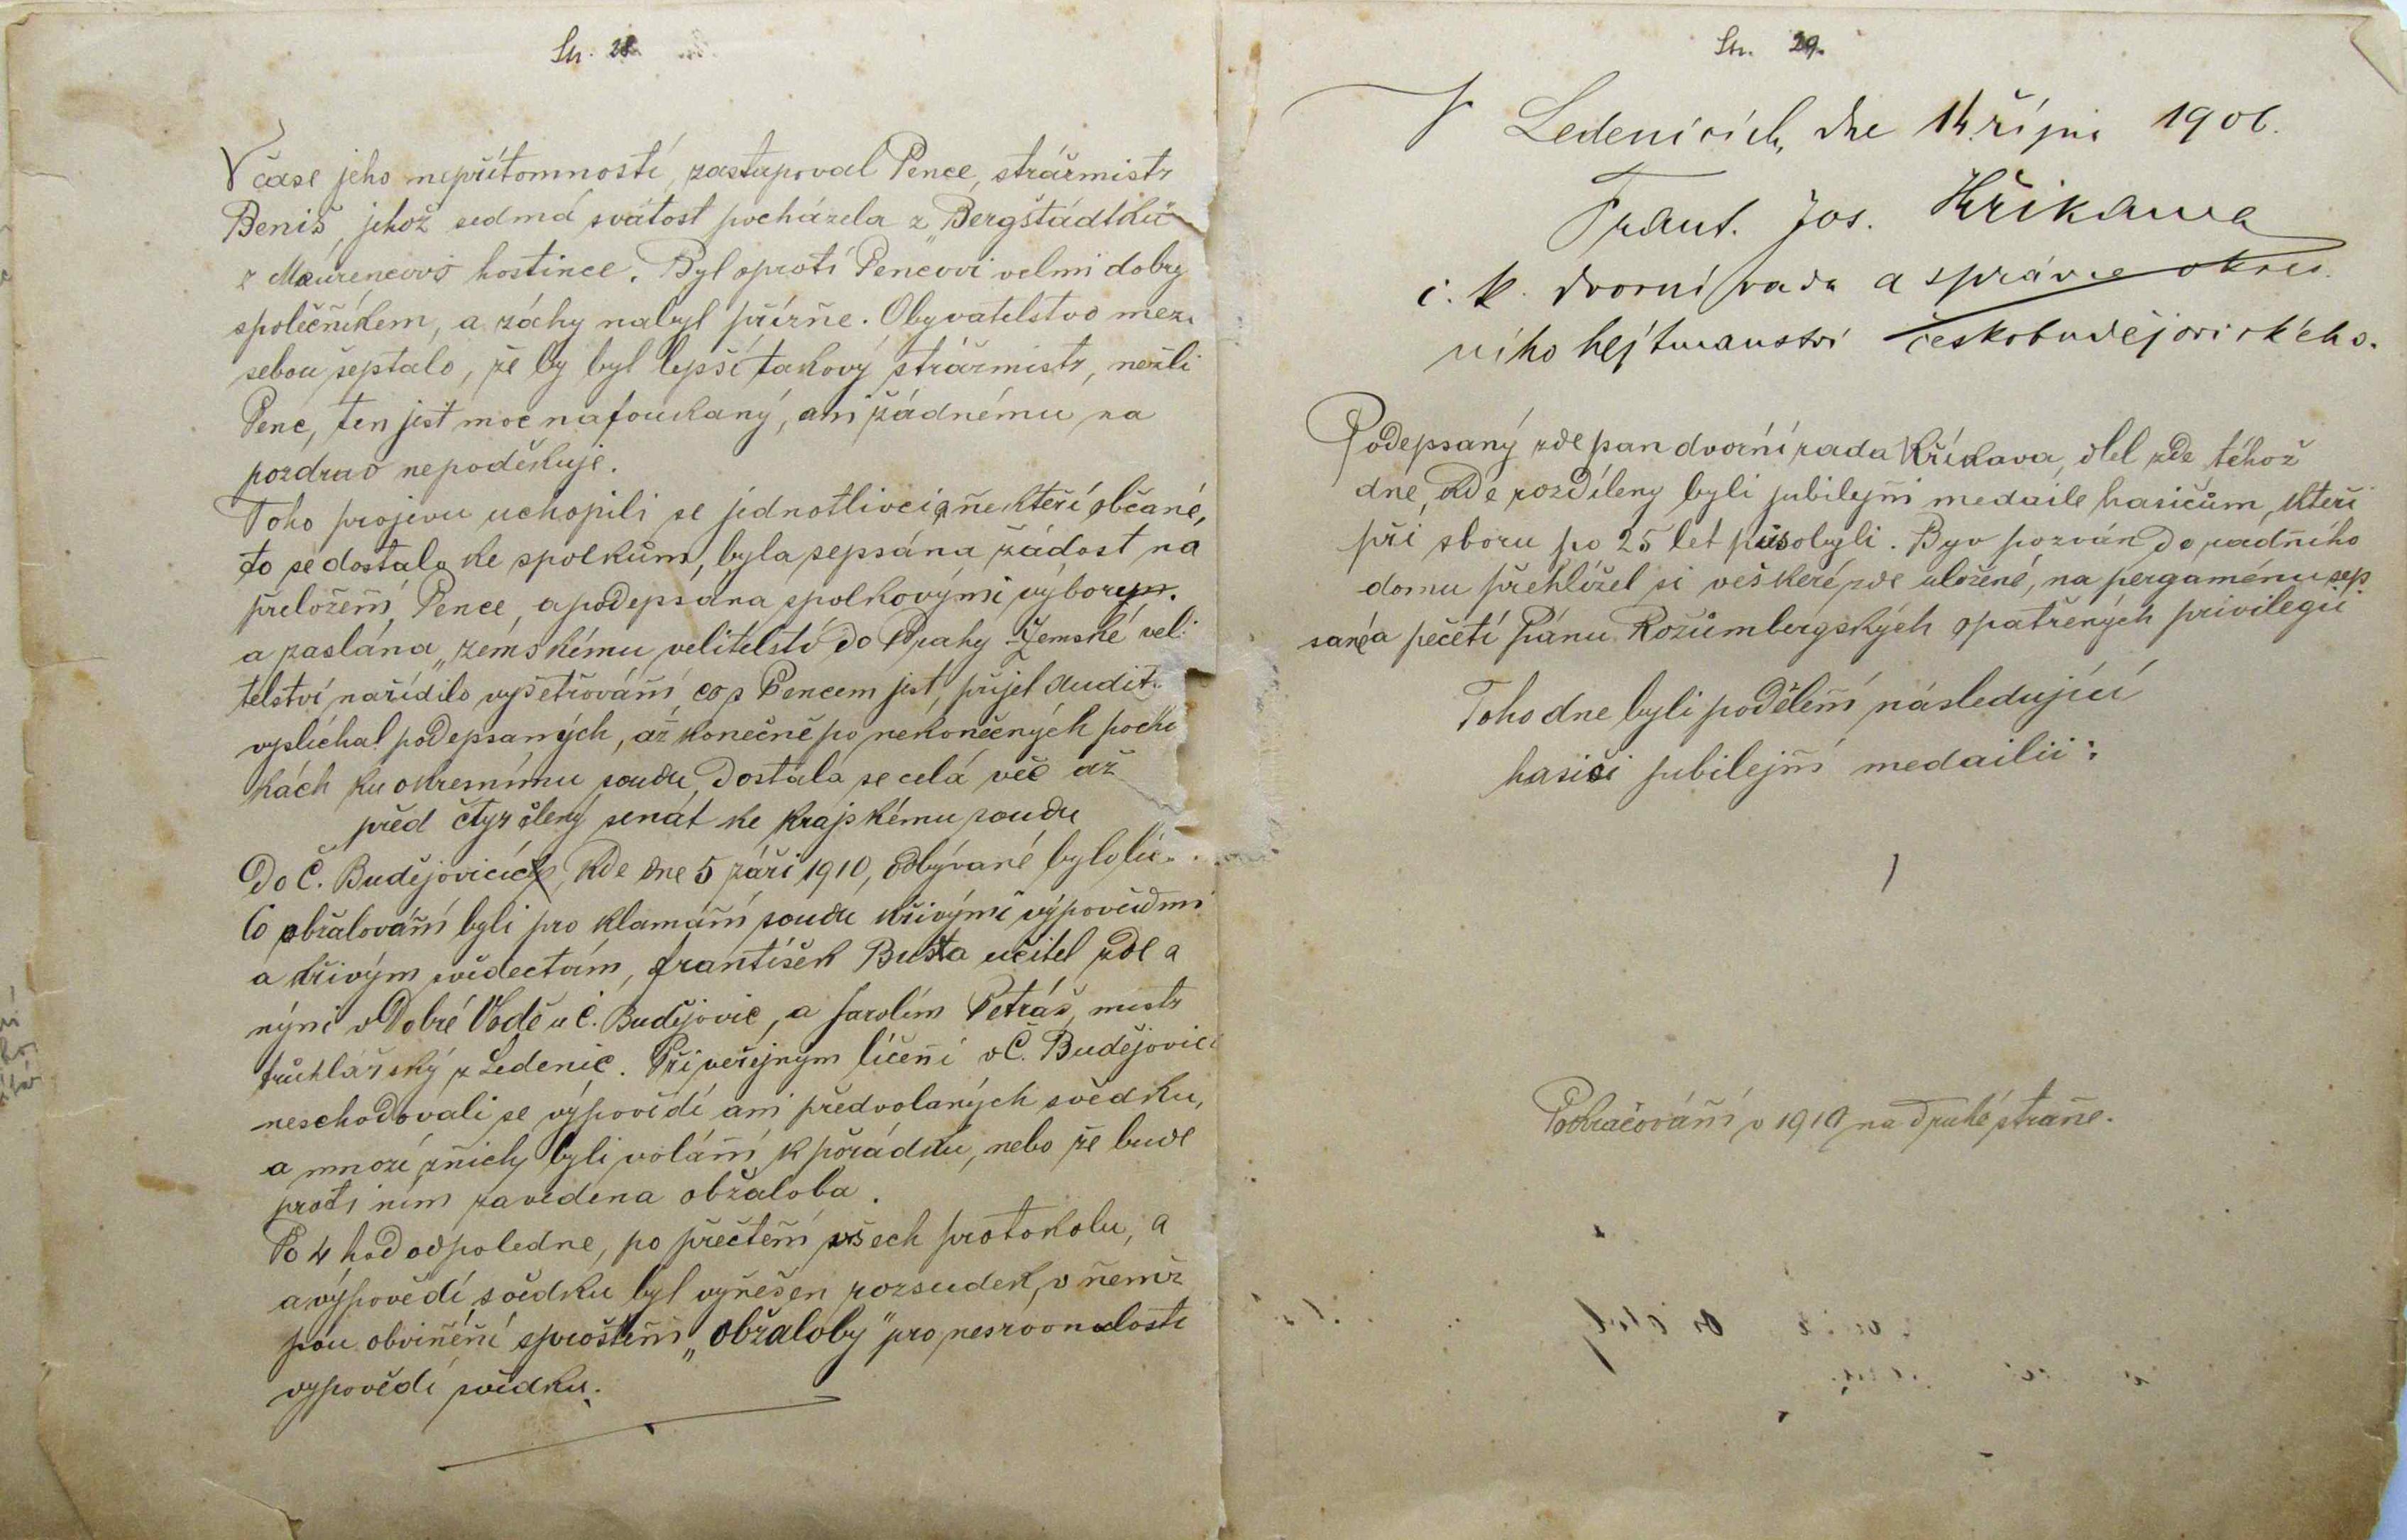 Str. 28
V čase jeho nepřítomností, zastupoval Pence, strážmistr
Beniš, jehož sedmá svátost pocházela z „Bergštádtku"
z Maurencovo hostince. Byl oproti Pencovi velmi dobrý
společníkem, a záhy nabyl přízně. Obyvatelstvo mezi
sebou šeptalo, že by byl lepší takový strážmistr, nežli
Penc, ten jest moc nafoukaný, ani žádnému na
pozdrav nepoděkuje.
Toho projevu uchopili se jednotlivci a někteří občané,
to se dostalo ke spolkům, byla sepsána žádost na
preložení Pence, a podepsána spolkovými výborem.
a zaslána „zemskému velitelství do Prahy. Zemské veli
telství nařídilo vyšetřování co s Pencem jest, přijel audit.
vyslíchal podepsaných, až konečně po nekonečných pochů
kách ku okresnímu soudu, Dostala se celá věc až
před čtyrčlený senát ke krajskému soudu
Do Č. Budějovicích, kde dne 5 záři 1910, odbývané bylo líč.
Co obžalování byli pro klamání soudu křivými výpověďmi
a křivým svědectvím, František Bušta učitel zde a
nýni v Dobré Vodě u Č. Budějovic, a Jarolím Petráš, mistr
truhlářský z Ledenic. Při veřejným líčení v Č. Budějovic
neschodovali se výpovědí ani předvolaných svědku,
a mnozí z nich byli voláni k pořádku, nebo že bude
proti ním zavedena obžaloba.
Po 4 hod odpoledne, po přečtení všech protokolu, a
a výpovědí svědku byl vyněšen rozsudek, v němž
jsou obvinění sproštěni „obžaloby" pro nesrovnalosti
vypovědí svědku.
Str. 29.
V Ledenicích, dne 14. října 1906.
Frant. Jos. Křikawa
c. k. dvorní rada a správce okres
ního hejtmanství českobudějovického.
Podepsaný zde pan dvorní rada Křikava, dlel zde téhož
dne, kde rozdíleny byli jubilejní medaile hasičům, kteří
při sboru po 25 let působyli. Byv pozván do radního
domu přehlížel si veškeré zde uložené, na pergaménu sep
sané a pečetí Pánu Rožumbergských opatřených privilegií.
Toho dne byli podělení následující
hasiči jubilejní medailii:
Pokračování v 1910 na druhé straně.